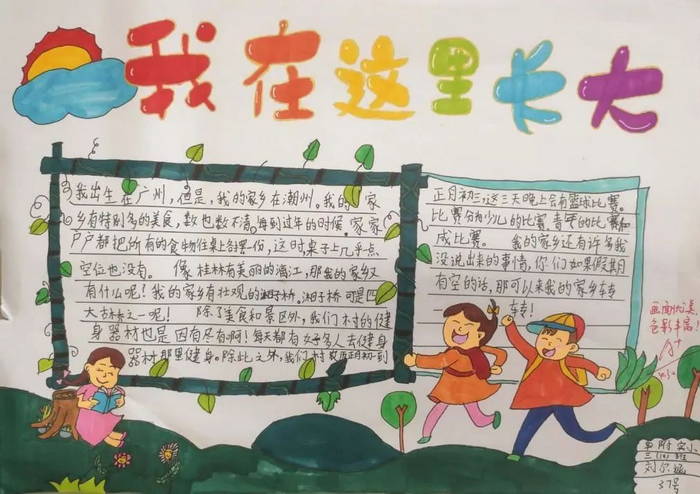 我在这里长大
我出生在广州，但是，我的家乡在潮州。我的家
乡有特别多的美食，数也数不清。每到过年的时候，家家
户户都把所有的食物往桌上摆，这时，桌子上几乎点
空位也没有。 像桂林有美丽的漓江，那我的家乡又
有什么呢？我的家乡有壮观的湘子桥，湘子桥可是四
大古桥之一呢！ 除了美食和景区外，我们村的健
身器材也是因有尽有啊！每天都有好多人去健身
器材那里健身。除此之外，我们村每年正月初一到
正月初三，这三天晚上会有篮球比赛。
比赛分为少儿的比赛、青年的比赛和
成比赛。 我的家乡还有许多我
没说出来的事情，你们如果假期
有空的话，那可以来我的家乡转
转！
画面优美，
色彩丰富！
附实小
三(10)班
刘尔
37号